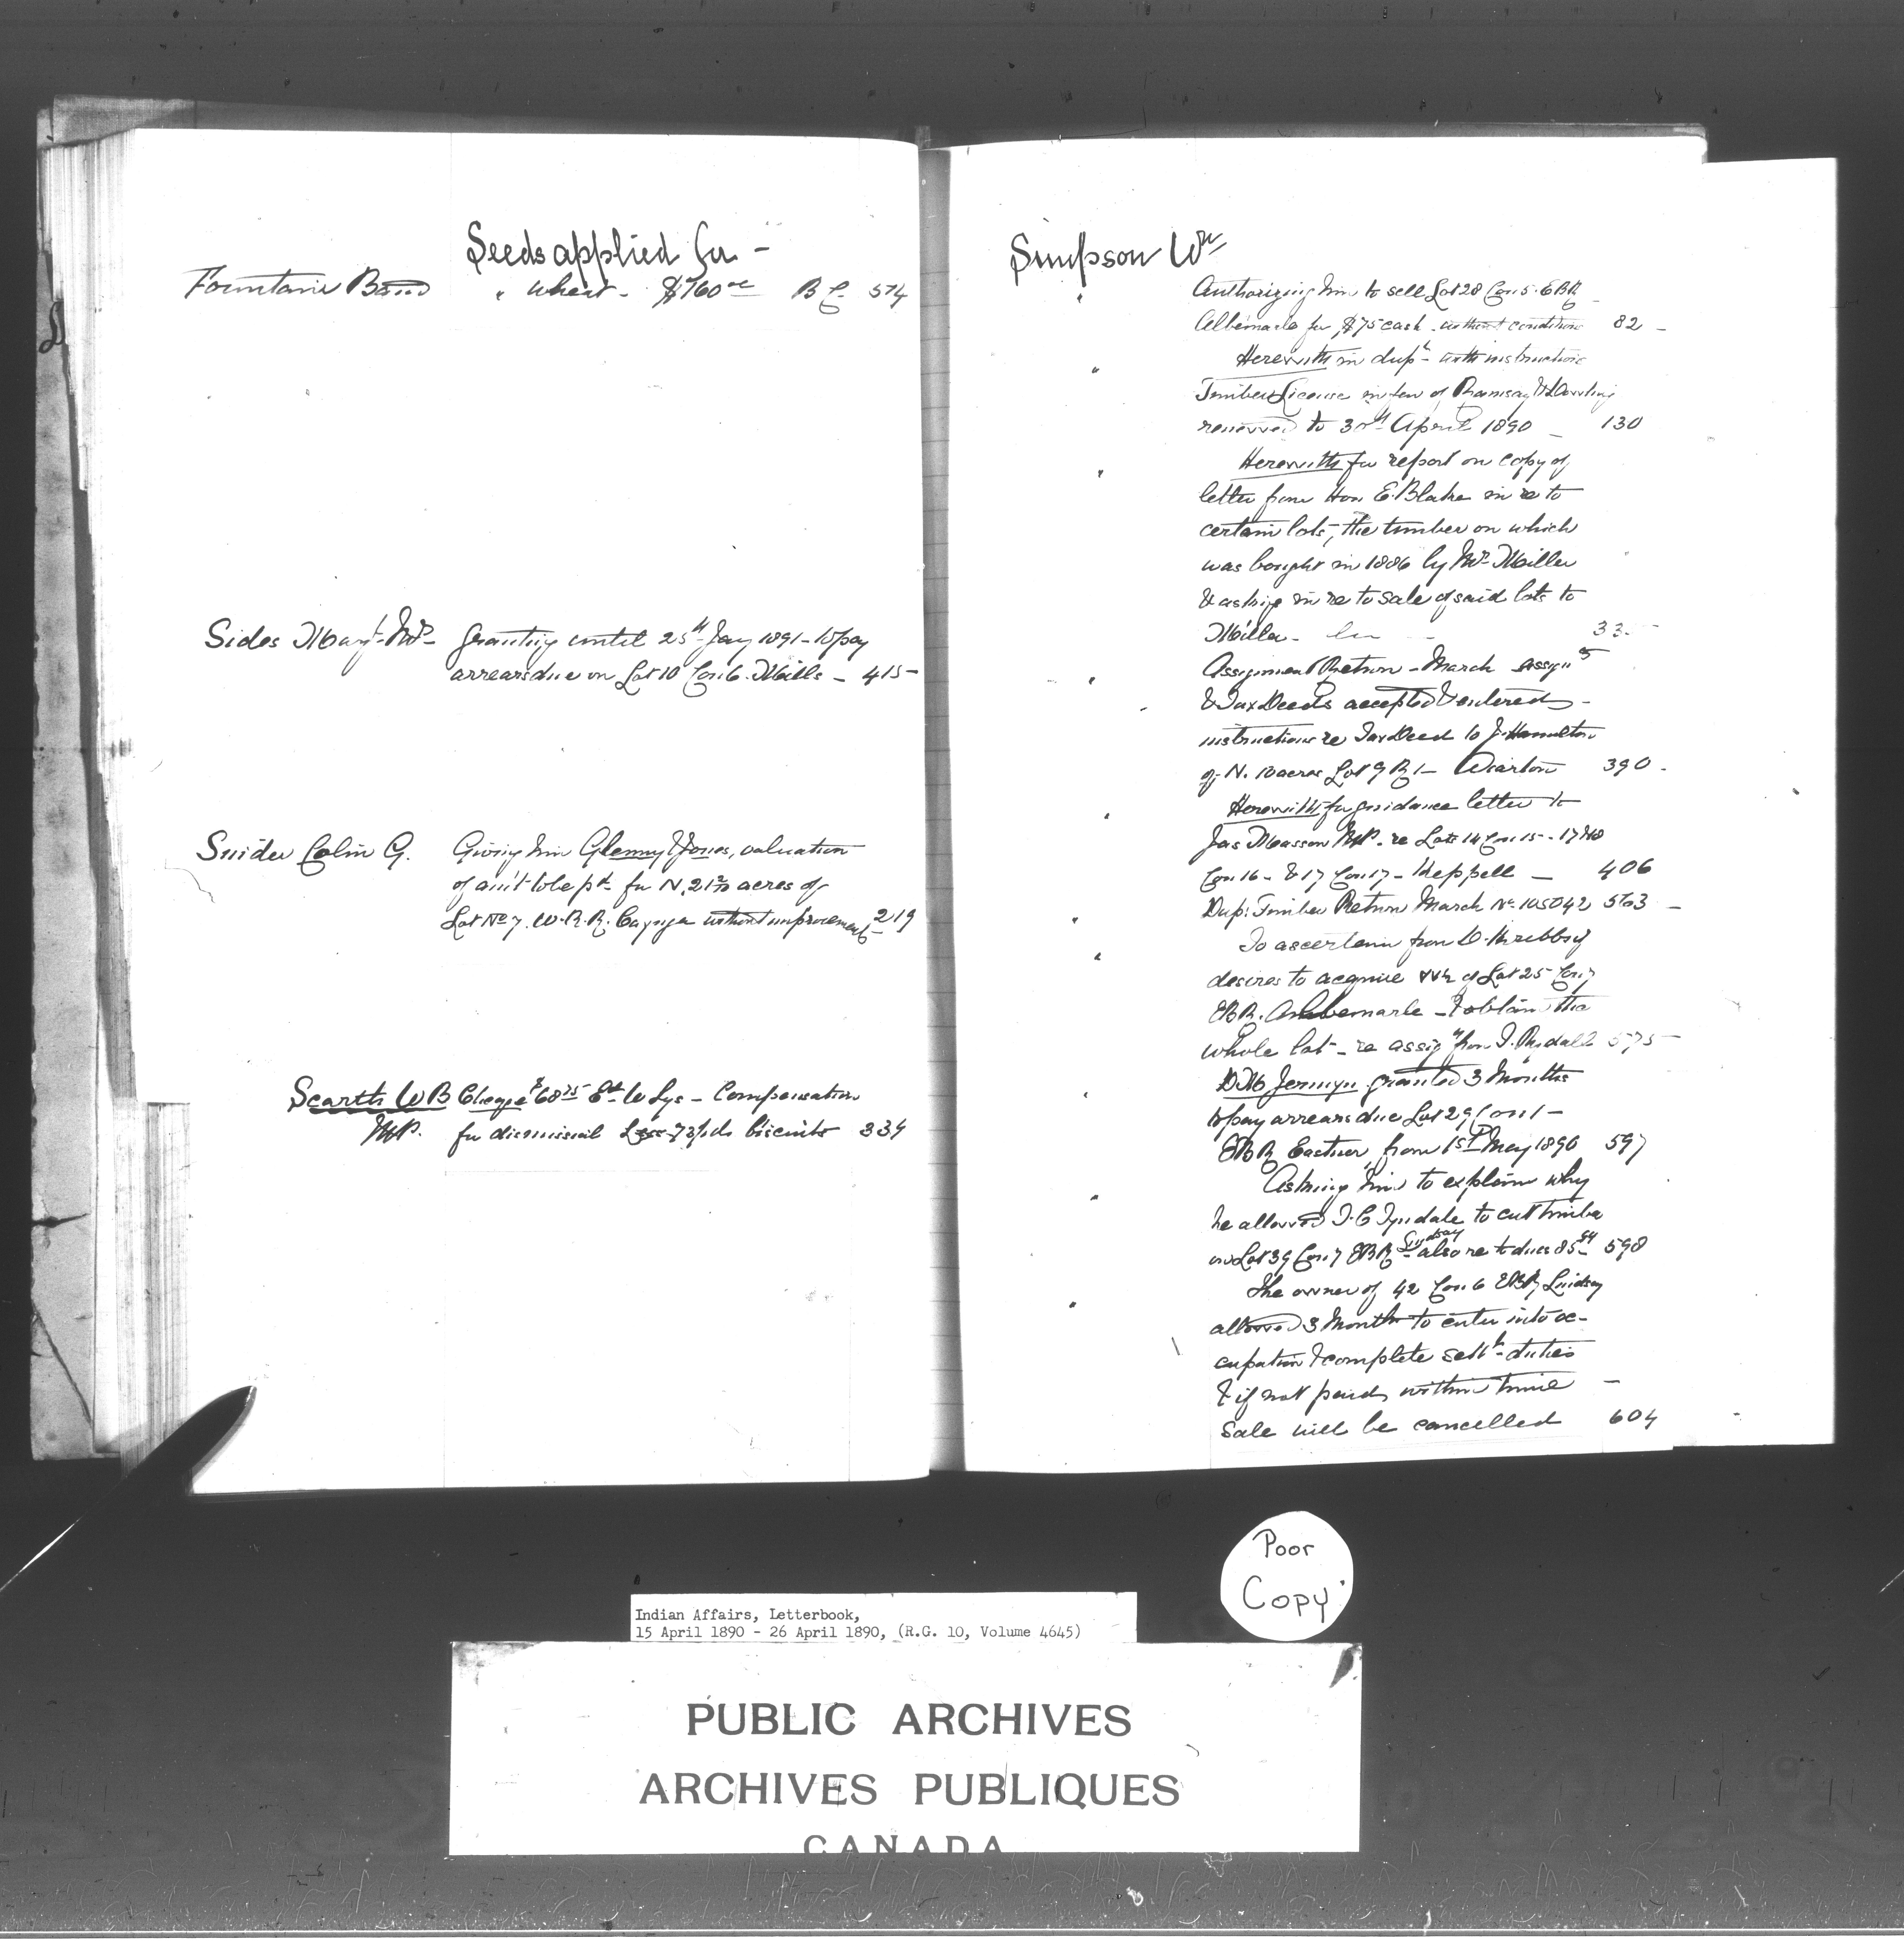 Seeds applied for -
Fountain Band " wheat - $760 00 B C 574
Sides Marg't Mrs Granting until 25th Jany 1891 - to pay
arrears due on Lot 10 Con 6. Mills - 415 -
Snider Colin G. Giving him Glenny & Jones, valuation
of am't to be pd for N. acres of
Lot No 7. W. R. R. Cayuga without improvements 219
Scarth W B Cheque $68 75 Ed W Lys - Compensation
MP. for dismissal Less biscuits 334
Simpson Wm
" Authorizing him to sell Lot 28 Con 5. E B R
Albemarle for $75 cash - without conditions 82 -
" Herewith in dup - with instructions
Timber License in fav of Ramsay &
renewed to 30th April 1890 - 130
" Herewith for report on copy of
letter from Hon E. Blake in re to
certain lots, the timber on which
was bought in 1886 by Mr. Miller
& asking in re to sale of said lots to
Miller - 33
" Assignment Return - March assigts
& Tax Deeds accepted & entered -
instructions re Tax Deed to J. Hamilton
of N. 10 acres Lot 9 R 1 - Wiarton 390 -
" Herewith for guidance letter to
Jas Masson MP. re Lots 14 Con 15 - 17 & 18
Con 16 - & 17 Con 17 - Keppell - 406
" Dup: Timber Return March No 105042 563 -
" To ascertain from D. if
desires to acquire of Lot 25 Con 7
EBR. Albemarle - & obtain the
whole lot - re assigt from J. 575 -
D M Jermyn granted 3 Months
to pay arrears due Lot 29 Con 1 -
EBR Eastnor from 1st May 1890 597
" Asking him to explain why
he allowed J. C Tyndale to cut timber
on Lot 39 Con 7 EBR Lindsay also re to dues 85 94 598
" The owner of 42 Con 6 EBR Lindsay
allowed 3 Months to enter into oc-
cupation & complete settt duties
& if not paid, within time -
Sale will be cancelled 604
Poor
Copy
Indian Affairs, Letterbook,
15 April 1890 - 26 April 1890, (R.G. 10, Volume 4645)
PUBLIC ARCHIVES
ARCHIVES PUBLIQUES
CANADA